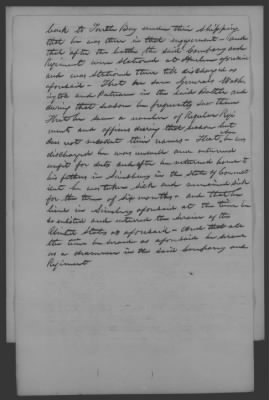 back to Turtle Bay under their shipping
that he was then in that engagement - and
that after the battle the said Company and
Regiment were stationed at Harlem aforesaid
and was stationed there till discharged as
aforesaid - That he saw Generals Wash-
ington and Putnam in the said battle and
during that season he frequently saw them
That he saw a number of Regular Regi
ments and officers during that season but
does not recollect their names - That when he was
discharged he was unwell and returned
and after he returned home to
his fathers in Simsbury in the State of Connect
icut he was taken sick and remained sick
for the term of six months - and that he
lived in Simsbury aforesaid at the time he
so enlisted and entered the service of the
United States as aforesaid - And that all
the time he served as aforesaid he served
as a drummer in the said Company and
Regiment